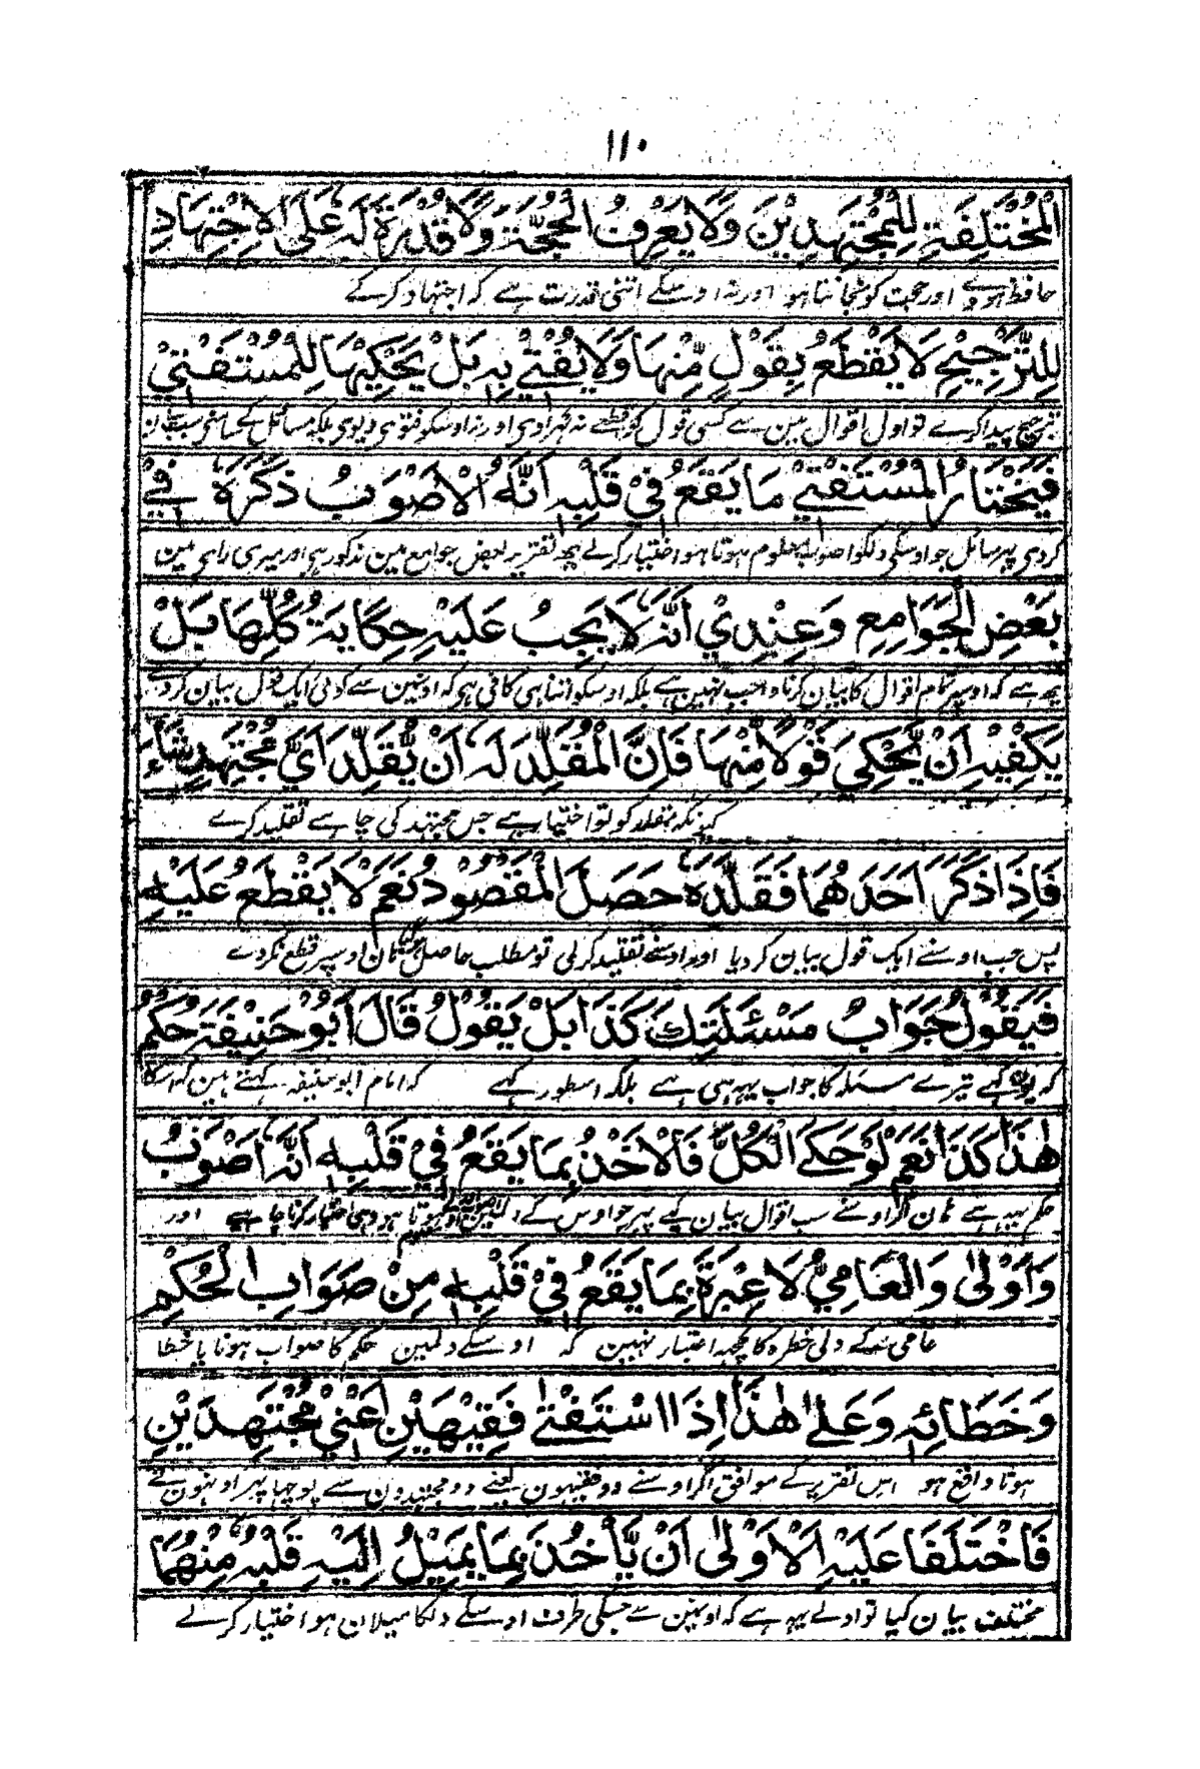 ١١٠
الْمُخْتَلِفَةِ لِلْمُجْتَهِدِيْنَ وَلَا يَعْرِفُ الْحُجَّةَ وَلَا قُدْرَةَ لَهٗ عَلَى الْاِجْتِهَادِ
حافظ ہووے اور حجت کو نجانتا ہو اور نہ اوسکے اتنی قدرت ہے کہ اجتہاد کرکے
لِلتَّرْجِيْحِ لَا يَقْطَعُ بِقَوْلٍ مِّنْهَا وَلَا يُفْتِيْ بِهٖ بَلْ يَحْكِيْهَا لِلْمُسْتَفْتِيْ
ترجیح پیدا کرے تو اون اقوال مین سے کسی قول کو قطعے نہ ٹہرادی اور نہ اوسکو فتوی دیوی بلکہ سائل کے سامنے سب بیان
فَيَخْتَارُ الْمُسْتَفْتِيْ مَا يَقَعُ فِيْ قَلْبِهٖ اَنَّهُ الْاَصْوَبُ ذَكَرَهٗ فِيْ
کردی پہر سائل جو اوسکی دلکو اصواب معلوم ہوتا ہو اختیار کرلے یہہ تقریر بعض جوامع مین مذکور ہی اور میری رای مین
بَعْضِ الْجَوَامِعِ وَعِنْدِيْ اَنَّهٗ لَا يَجِبُ عَلَيْهِ حِكَايَةُ كُلِّهَا بَلْ
یہہ ہے کہ اوسپر تمام اقوال کا بیان کرنا واجب نہین ہے بلکہ اوسکو اتنا ہی کافی ہی کہ اونمین سے کوئی ایک قول بیان کردے
يَكْفِيْهِ اَنْ يَّحْكِيَ قَوْلًا مِّنْهَا فَاِنَّ الْمُقَلِّدَ لَهٗ اَنْ يُّقَلِّدَ اَيَّ مُجْتَهِدٍ شَاءَ
کیونکہ مقلد کو تو اختیار ہے جس مجتہد کی چاہے تقلید کرے
فَاِذَا ذَكَرَ اَحَدَهُمَا فَقَلَّدَهٗ حَصَلَ الْمَقْصُوْدُ نَعَمْ لَا يَقْطَعُ عَلَيْهِ
پس جب اوسنے ایک قول بیان کردیا اور اوسنے تقلید کرلی تو مطلب حاصل ہان اوسپر قطع نکردے
فَيَقُوْلُ جَوَابُ مَسْئَلَتِكَ كَذَا بَلْ يَقُوْلُ قَالَ اَبُوْ حَنِيْفَةَ حُكْمُ
کہ یون کہے تیرے مسئلہ کا جواب یہہ ہی ہے بلکہ اسطور کہے کہ امام ابو حنیفہ کہتے ہین کہ اسکا
هٰذَا كَذَا نَعَمْ لَوْ حَكَى الْكُلَّ فَالْاَخْذُ بِمَا يَقَعُ فِيْ قَلْبِهٖ اَنَّهٗ اَصْوَبُ
حکم یہہ ہے ہان اگر اوسنے سب اقوال بیان کیے پہر جو اوس کے دلمین ہوتا ہو وہی اختیار کرنا چاہیے اور
وَاَوْلٰى وَالْعَامِيُّ لَا عِبْرَةَ بِمَا يَقَعُ فِيْ قَلْبِهٖ مِنْ صَوَابِ الْحُكْمِ
عامی کے دلی خطرہ کا کچہہ اعتبار نہین کہ اوسکے دلمین حکم کا صواب ہونا یا خطا
وَخَطَائِهٖ وَعَلٰى هٰذَا اِذَا اسْتَفْتٰى فَقِيْهَيْنِ اَعْنِيْ مُجْتَهِدَيْنِ
ہونا واقع ہو اس تقریر کے موافق اگر اوسنے دو فقیہون یعنے دو مجتہدون سے پوچہا پہر اونہون نے
فَاخْتَلَفَا عَلَيْهِ اَلْاَوْلٰى اَنْ يَّأْخُذَ بِمَا يَمِيْلُ اِلَيْهِ قَلْبُهٗ مِنْهُمَا
مختلف بیان کیا تو اولے یہہ ہے کہ اونمین سے جسکی طرف اوسکے دلکا میلان ہو اختیار کرلے